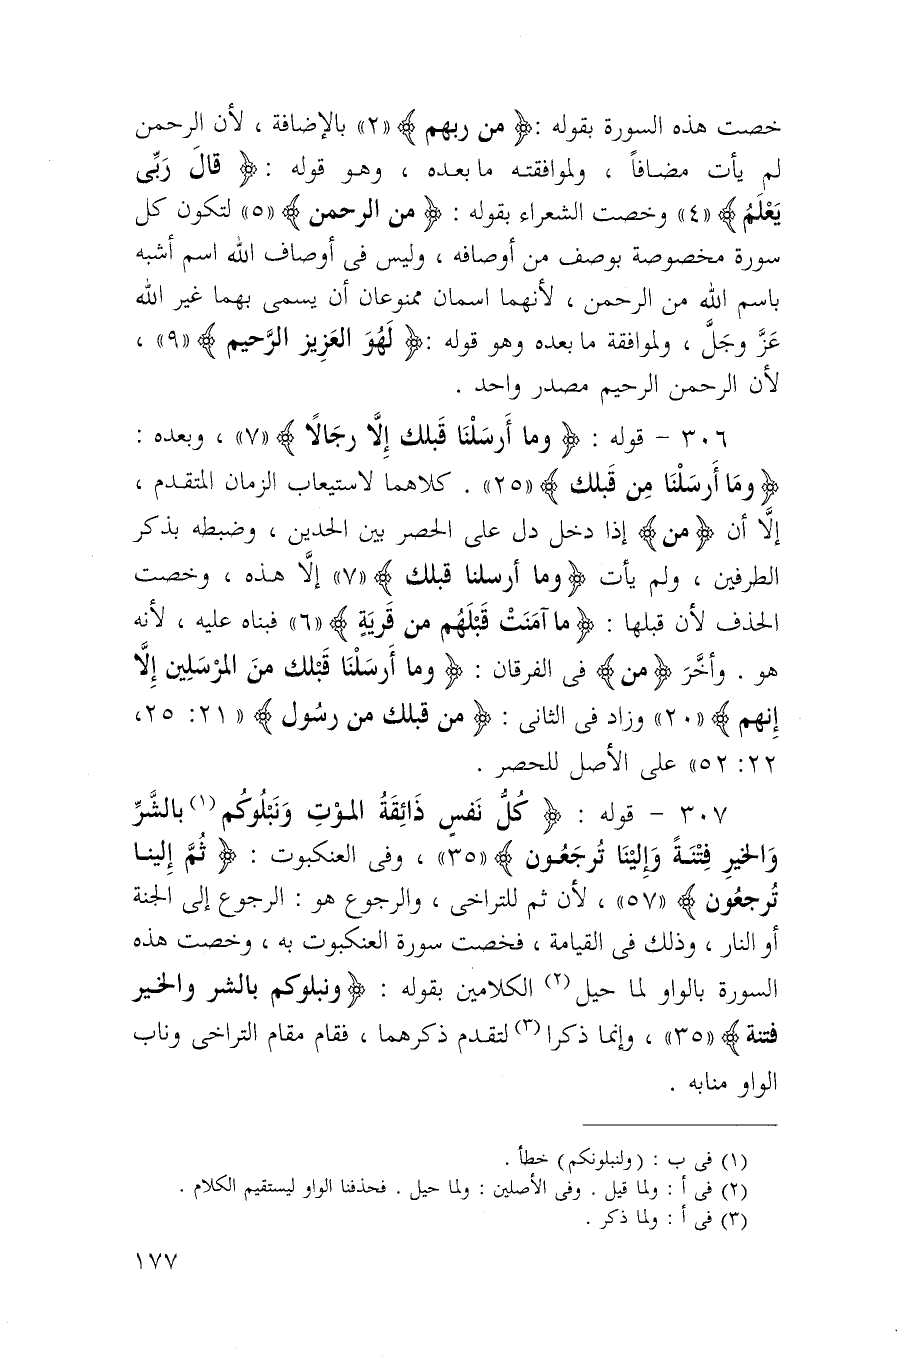 خصت هذه السورة بقوله :﴿ من ربهم ﴾ «٢» بالإضافة ، لأن الرحمن
لم يأت مضافاً ، ولموافقته ما بعده ، وهو قوله : ﴿ قالَ رَبِّى
يَعْلَمُ ﴾ «٤» وخصت الشعراء بقوله : ﴿ من الرحمن ﴾ «٥» لتكون كل
سورة مخصوصة بوصف من أوصافه ، وليس فى أوصاف الله اسم أشبه
باسم الله من الرحمن ، لأنهما اسمان ممنوعان أن يسمى بهما غير الله
عَزَّ وجَلَّ ، ولموافقة ما بعده وهو قوله :﴿ لَهُوَ العَزِيز الرَّحيم ﴾ «٩» ،
لأن الرحمن الرحيم مصدر واحد .
٣٠٦ - قوله : ﴿ وما أَرسَلْنَا قَبلك إِلَّا رجَالًا ﴾ «٧» ، وبعده :
﴿ ومَا أَرسَلْنَا مِن قَبلك ﴾ «٢٥» . كلاهما لاستيعاب الزمان المتقدم ،
إلَّا أن ﴿من﴾ إذا دخل دل على الحصر بين الحدين ، وضبطه بذكر
الطرفين ، ولم يأت ﴿وما أرسلنا قبلك ﴾ «٧» إلَّا هذه ، وخصت
الحذف لأن قبلها : ﴿ ما آمَنَتْ قَبْلَهُم من قَريَةٍ ﴾ «٦» فبناه عليه ، لأنه
هو . وأخَّرَ ﴿من﴾ فى الفرقان : ﴿ وما أَرسَلْنَا قَبْلك منَ المرْسَلِين إلَّا
إِنهم ﴾ «٢٠» وزاد فى الثانى : ﴿ من قبلك من رسُول ﴾ « ٢١: ٢٥،
٢٢: ٥٢» على الأصل للحصر .
٣٠٧ - قوله : ﴿ كُلُّ نَفسٍ ذَائِقَةُ المـوْتِ وَنَبْلُوكُم (١) بالشَّرِّ
وَالخيرِ فِتْنَـةً وَإليْنَا تُرجَعُـون ﴾ «٣٥» ، وفى العنكبوت : ﴿ ثُمَّ إلينـا
تُرجعُون ﴾ «٥٧» ، لأن ثم للتراخى ، والرجوع هو : الرجوع إلى الجنة
أو النار ، وذلك فى القيامة ، فخصت سورة العنكبوت به ، وخصت هذه
السورة بالواو لما حيل (٢) الكلامين بقوله : ﴿ونبلوكم بالشر والخير
فتنة﴾ «٣٥» ، وإنما ذكرا (٣) لتقدم ذكرهما ، فقام مقام التراخى وناب
الواو منابه .
(١) فى ب : (ولنبلونكم) خطأ .
(٢) فى أ : ولما قيل . وفى الأصلين : ولما حيل . فحذفنا الواو ليستقيم الكلام .
(٣) فى أ : ولما ذكر .
١٧٧